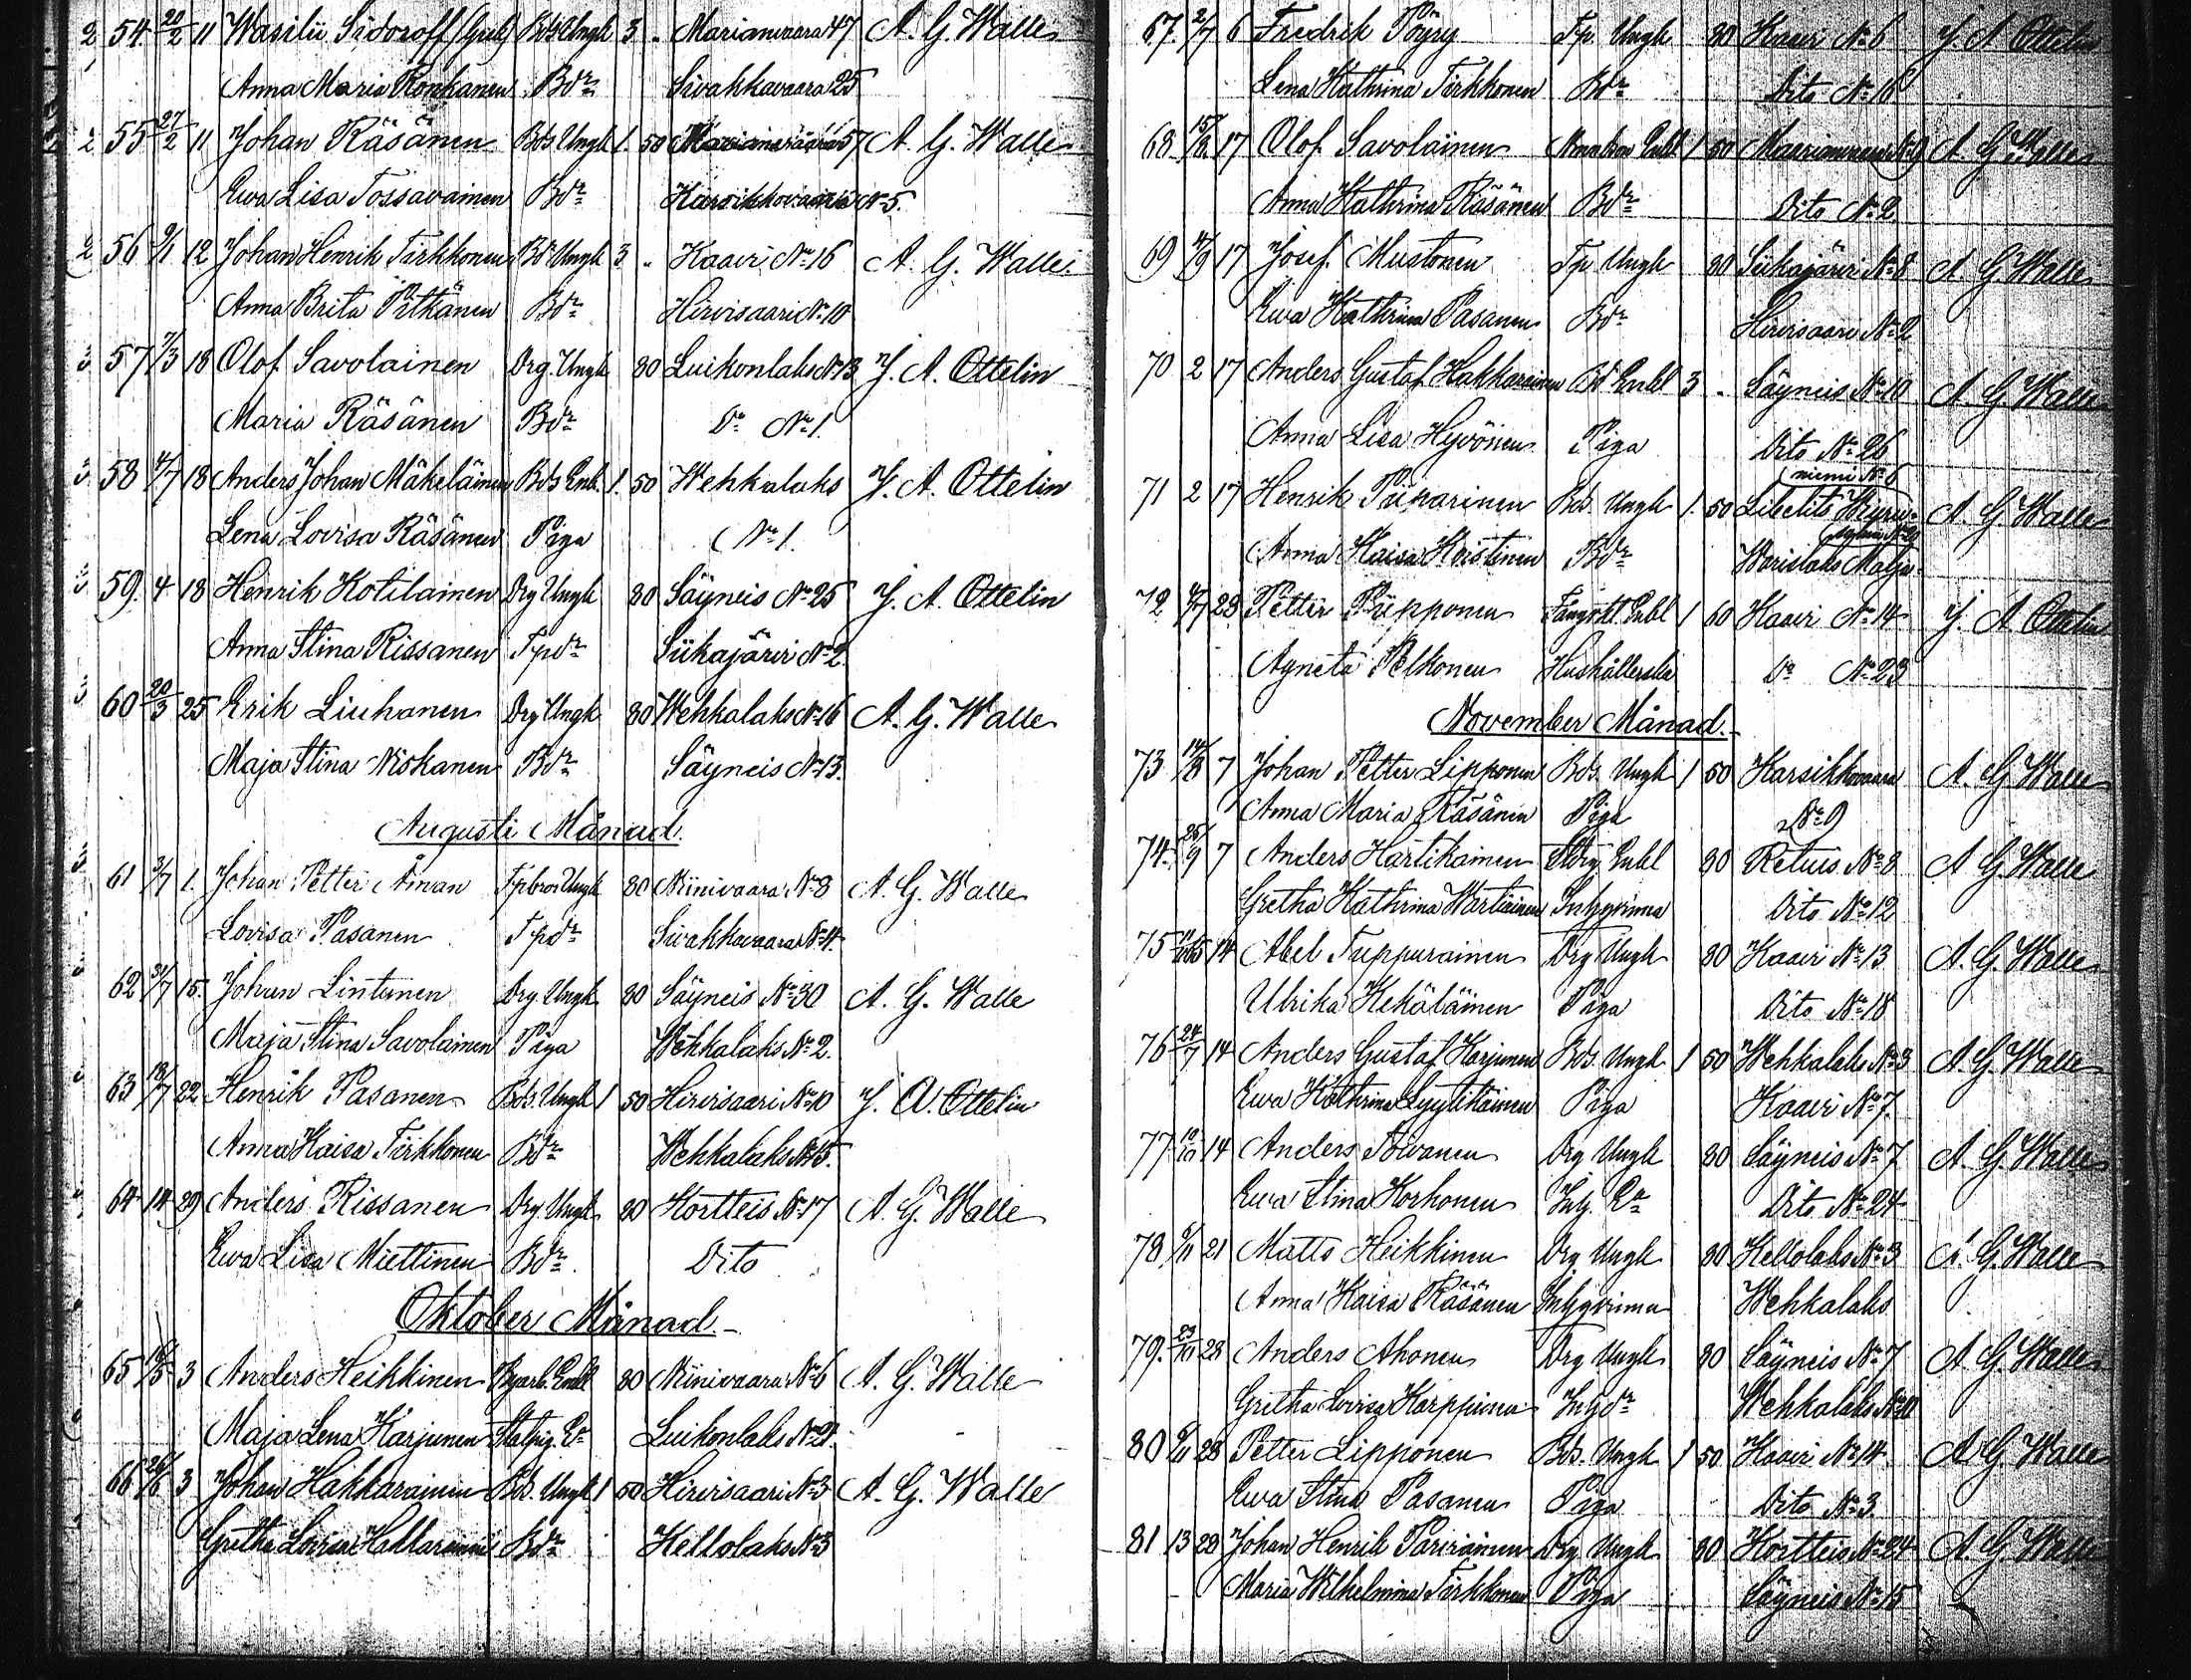 2 54 20/2 11 Wasilii Sidoroff (Grek) Bds Ungk 3 „ Marianvaara 47 A. G. Walle
Anna Maria Ronkanen Bdr Sivakkavaara 25
2 55 27/2 11 Johan Räsänen Bds Ungk 1. 50 57 A. G. Walle
Ewa Lisa Tossavainen Bdr Karsikkovaara No 5.
2 56 9/1 12 Johan Henrik Tirkkonen Bd Ungk 3 „ Kaavi No 16 A. G. Walle
Anna Brita Pitkänen Bdr Hirvisaari No 10
3 57 7/3 18 Olof Savolainen Drg. Ungk 80 Luikonlaks No 13 J. A. Ottelin
Maria Räsänen Bdr Do No 1.
3 58 4/7 18 Anders Johan Mäkeläinen Bds Enk. 1. 50 Wehkalaks J. A. Ottelin
Lena Lovisa Räsänen Piga No 1.
3 59. 4 18 Henrik Kotilainen Drg Ungk 80 Säyneis No 25 J. A. Ottelin
Anna Stina Rissanen Tpdr Siikajärvi No 2.
3 60 20/3 25 Erik Liuhanen Drg Ungk 80 Wehkalaks No 16 A. G. Walle
Maja Stina Niskanen Bdr Säyneis No 13.
Augusti Månad.
61 3/7 1. Johan Petter Åman Tpbror Ungk 80 Niinivaara No 8 A. G. Walle
Lovisa Pasanen Tpdr Sivakkavaara No 4.
62 31/7 15. Johan Lintunen Drg. Ungk 80 Säyneis No 30 A. G. Walle
Maja Stina Savolainen Piga Wehkalaks No 2.
63 13/7 22 Henrik Pasanen Bds. Ungk 1 50 Hirvisaari No 10 J. A. Ottelin
Anna Kaisa Tirkkonen Bdr Wehkalaks No 15.
64 14 29 Anders Rissanen Drg. Ungk 80 Kortteis No 17 A. G. Walle
Ewa Lisa Miettinen Bdr Dito
Oktober Månad.
65 3 Anders Heikkinen Enkl 80 Niinivaara No 6 A. G. Walle
Maja Lena Karjunen Luikonlaks No 21.
66 3 Johan Hakkarainen Bds. Ungk 1 50 Hirvisaari No 3 A. G. Walle
Gretha Lovisa Hakkarainen Bdr Kellolaks No 3
67. 2/7 6 Fredrik Pöyry Tp Ungk 80 Kaavi No 6 J. A Ottelin
Lena Kathrina Tirkkonen Bdr Dito No 16
68 17 Olof Savolainen Enkl 1 50 A. G. Walle
Anna Kathrina Räsänen Bdr Dito No 2
69 4/9 17 Josef Mustonen Tp Ungk 80 Siikajärvi No 8 A G. Walle
Ewa Kathrina Pasanen Bdr Hirvisaari No 2
70 2 17 Anders Gustaf Hakkarainen Bd Enkl 3 „ Säyneis No 10 A. G. Walle
Anna Lisa Hyvönen Piga Dito No 26
niemi No 6
71 2 17 Henrik Piiparinen Bds. Ungk 1. 50 Libelits A. G. Walle
Anna Kaisa Koistinen Bdr Warislaks
72 4/7 23 Petter Piipponen Enkl 1 60 Kaavi No 14 J. A Ottelin
Agneta Pelkonen Hushållerska Do No 23
November Månad.
73 14/8 7 Johan Petter Lipponen Bds. Ungk 1 50 Karsikkovaara A. G. Walle
Anna Maria Räsänen Piga No 9
74. 25/9 7 Anders Hartikainen Enkl 80 Retuis No 8 A G. Walle
Gretha Kathrina Wartiainen Inhysinna Dito No 12
75 14 Abel Tuppurainen Drg Ungk 80 Kaavi No 13 A. G. Walle
Ulrika Kekäläinen Piga Dito No 18
76 24/7 14 Anders Gustaf Karjunen Bds. Ungk 1 50 Wehkalaks No 3 A. G. Walle
Ewa Kathrina Lyytikäinen Piga Kaavi No 7.
77 10/10 14 Anders Toivanen Drg Ungk 80 Säyneis No 7 A. G. Walle
Ewa Stina Korhonen Inh. Ea Dito No 24
78 6/11 21 Matts Heikkinen Drg Ungk 80 Kellolaks No 3 A. G. Walle
Anna Kaisa Räsänen Inhysinna Wehkalaks
79. 23/10 28 Anders Ahonen Drg Ungk 80 Säyneis No 7 A G. Walle
Gretha Lovisa Karppinen Inhdr Wehkalaks No 10
80 6/11 28 Petter Lipponen Bds. Ungk 1 50 Kaavi No 14 A. G. Walle
Ewa Stina Pasanen Piga Dito No 3
81 13 28 Johan Henrik Parviainen Drg Ungk 80 Kortteis No 24 A. G. Walle
Maria Wilhelmina Tirkkonen Piga Säyneis No 15